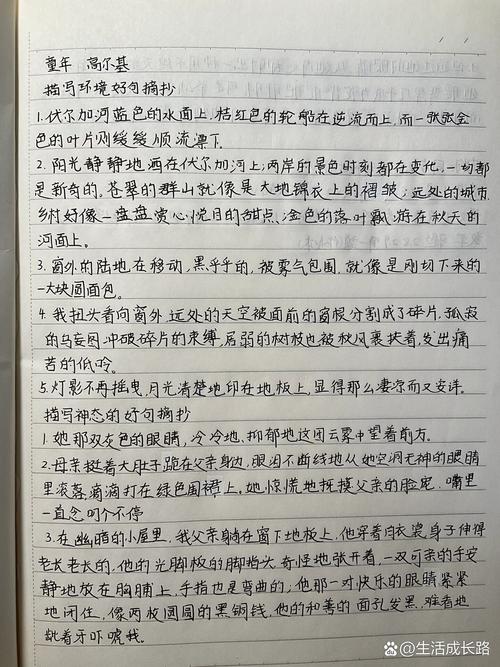 童年 高尔基
描写环境好句摘抄
1.伏尔加河蓝色的水面上,桔红色的轮船在逆流而上,而一张张金
色的叶片则缓缓顺流漂下。
2.阳光静静地洒在伏尔加河上;两岸的景色时刻都在变化,一切都
是新奇的。苍翠的群山就像是大地锦衣上的褶皱;远处的城市
乡村好像一盘盘赏心悦目的甜点,金色的落叶飘游在秋天的
河面上。
3.窗外的陆地在移动,黑乎乎的,被雾气包围,就像是刚切下来的
一大块圆面包。
4.我扭头看向窗外,远处的天空被面前的窗棂分割成了碎片,孤寂
的乌妄图冲破碎片的束缚,孱弱的树枝也被秋风裹挟着,发出痛
苦的低吟。
5.灯影不再摇曳,月光清楚地印在地板上,显得那么凄凉而又安详。
描写神态的好句摘抄
1.她那双灰色的眼睛,冷冷地、抑郁地透过云雾中望着前方。
2.母亲挺着大肚子跪在父亲身边,眼泪不断线地从她空洞无神的眼睛
里滚落滴滴打在绿色围裙上,她惊慌地抚摸父亲的脸庞,嘴里
一直念叨个不停
3.在幽暗的小屋里,我父亲躺在窗下地板上,他穿着白衣裳,身子伸得
老长老长的,他的光脚板的脚指头,奇怪地张开着,一双可亲的手安
静地放在胸脯上,手指也是弯曲的;他那一对快乐的眼睛紧紧
地闭住,像两枚圆圆的黑铜钱,他的和善的面孔发黑,难看地
龇着牙吓唬我。
百家号/生活成长路